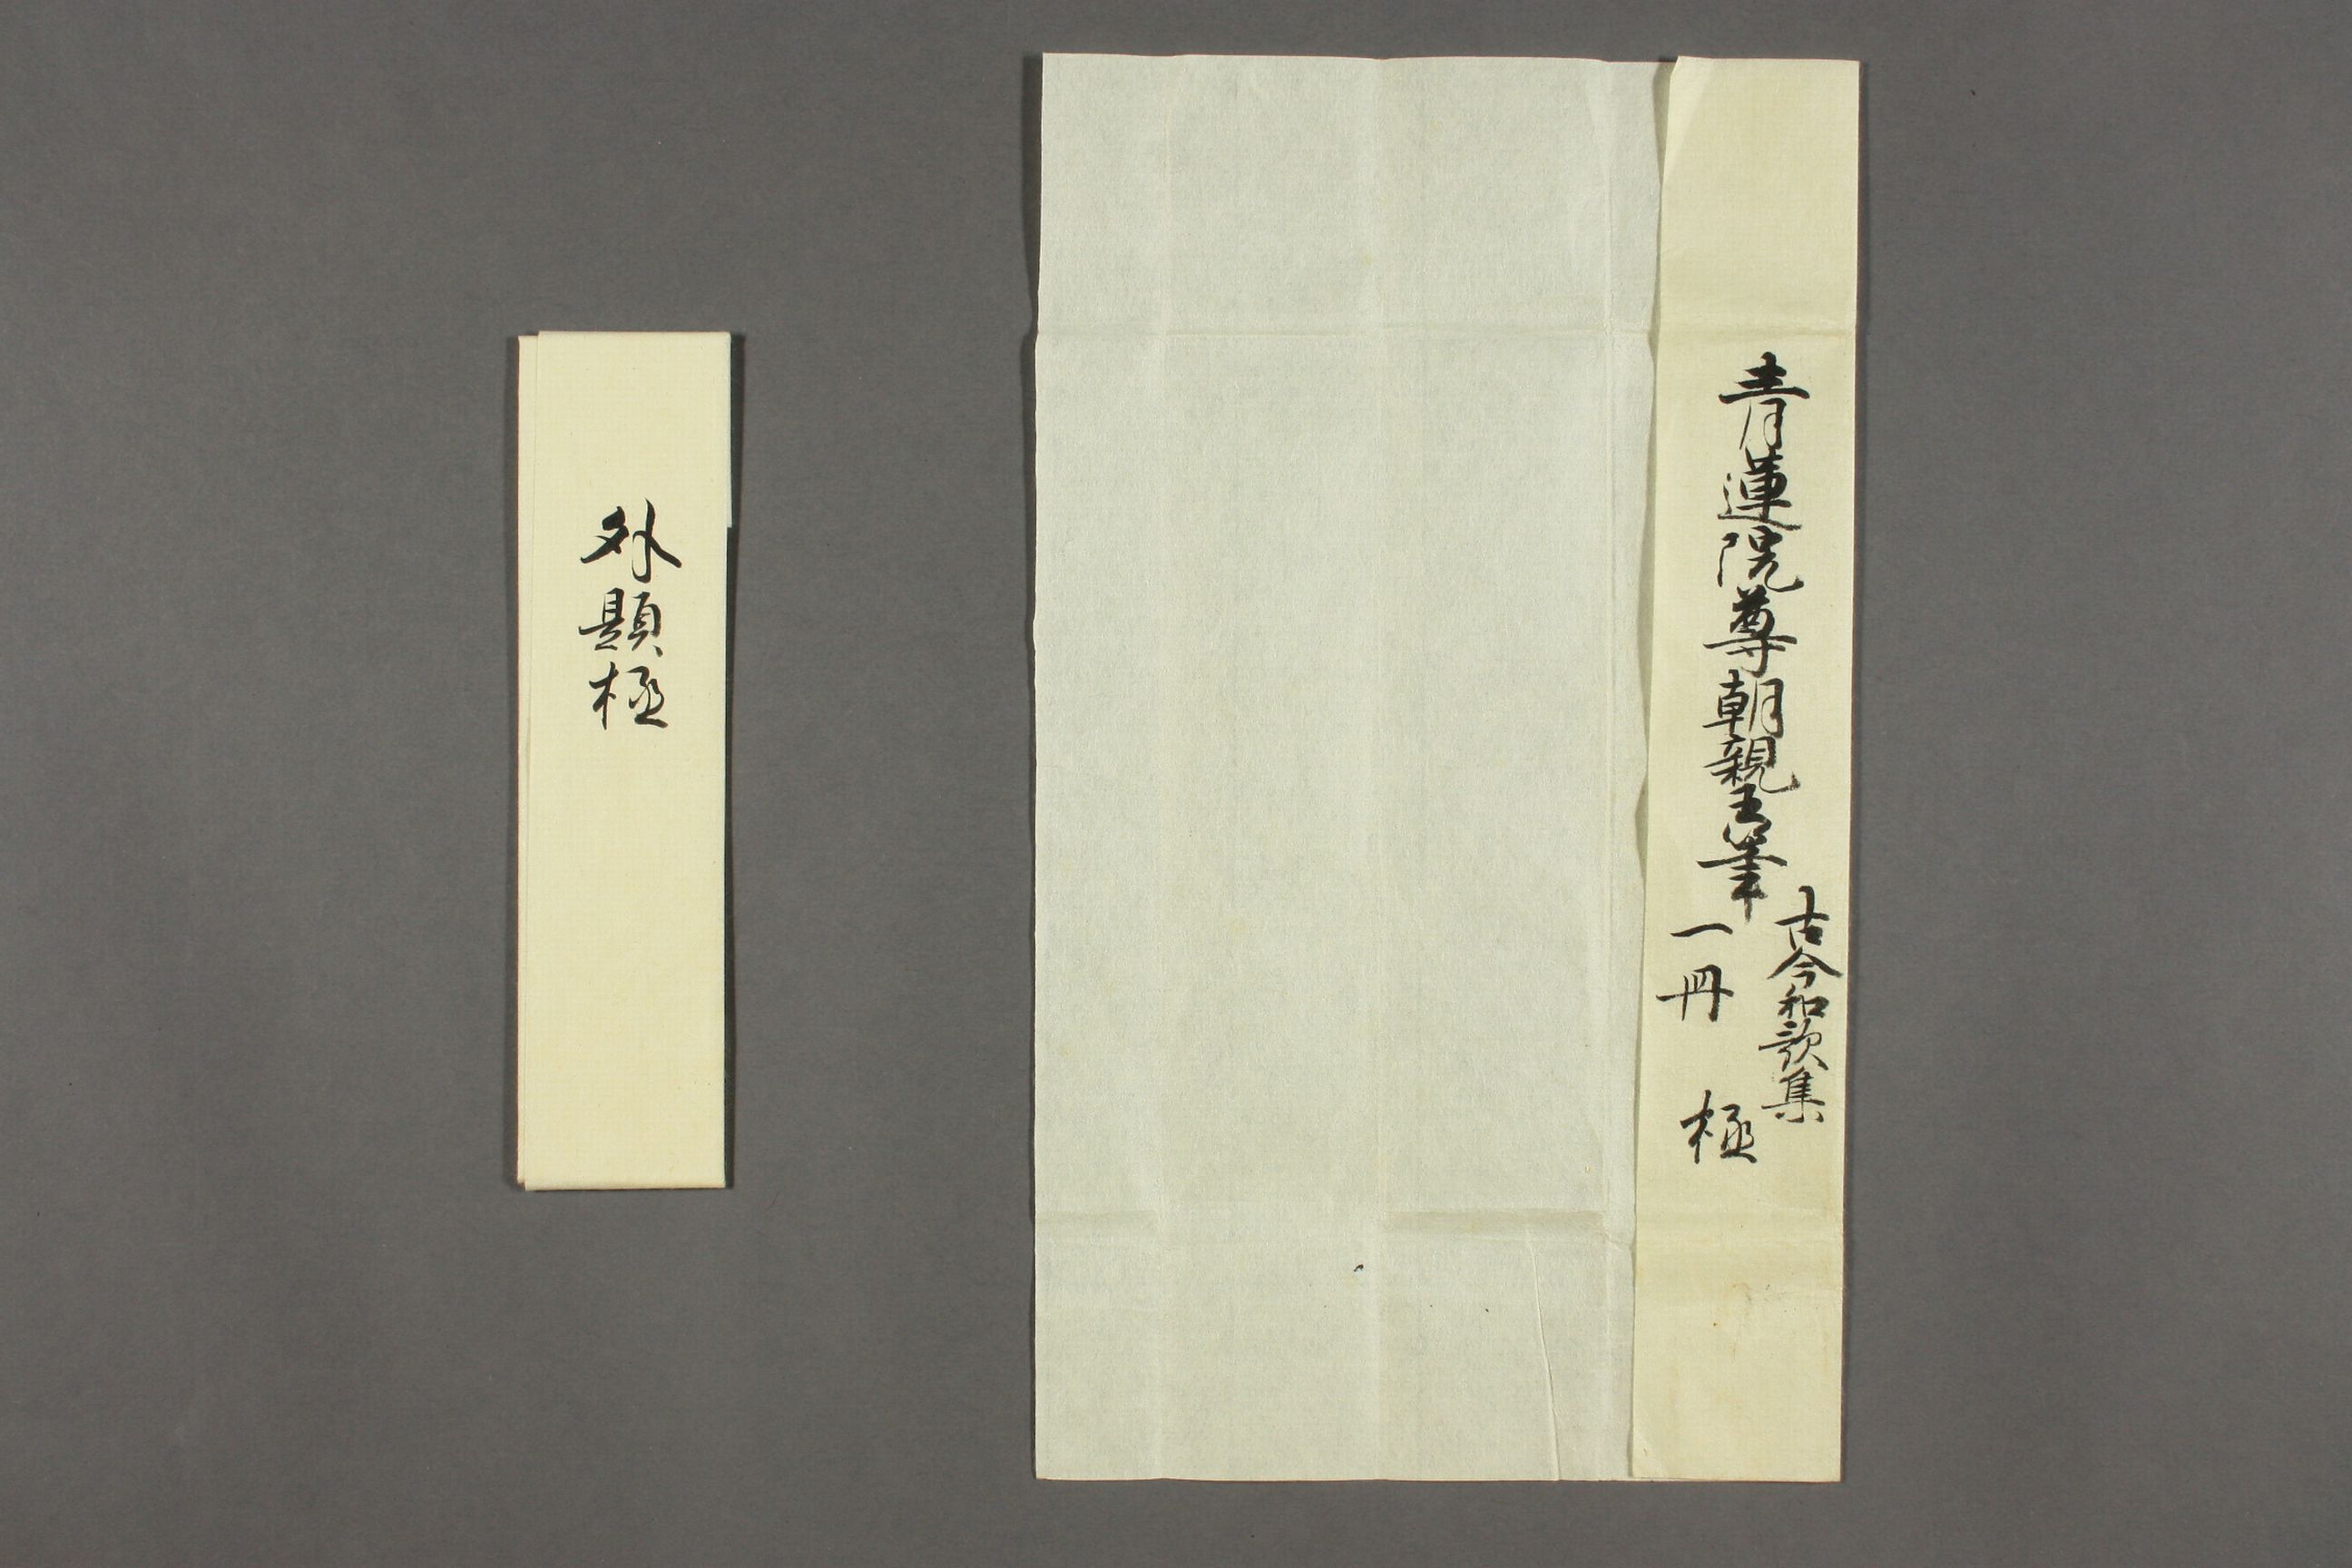 青蓮院尊朝親王筆
古今和歌集
一冊
極
外題極